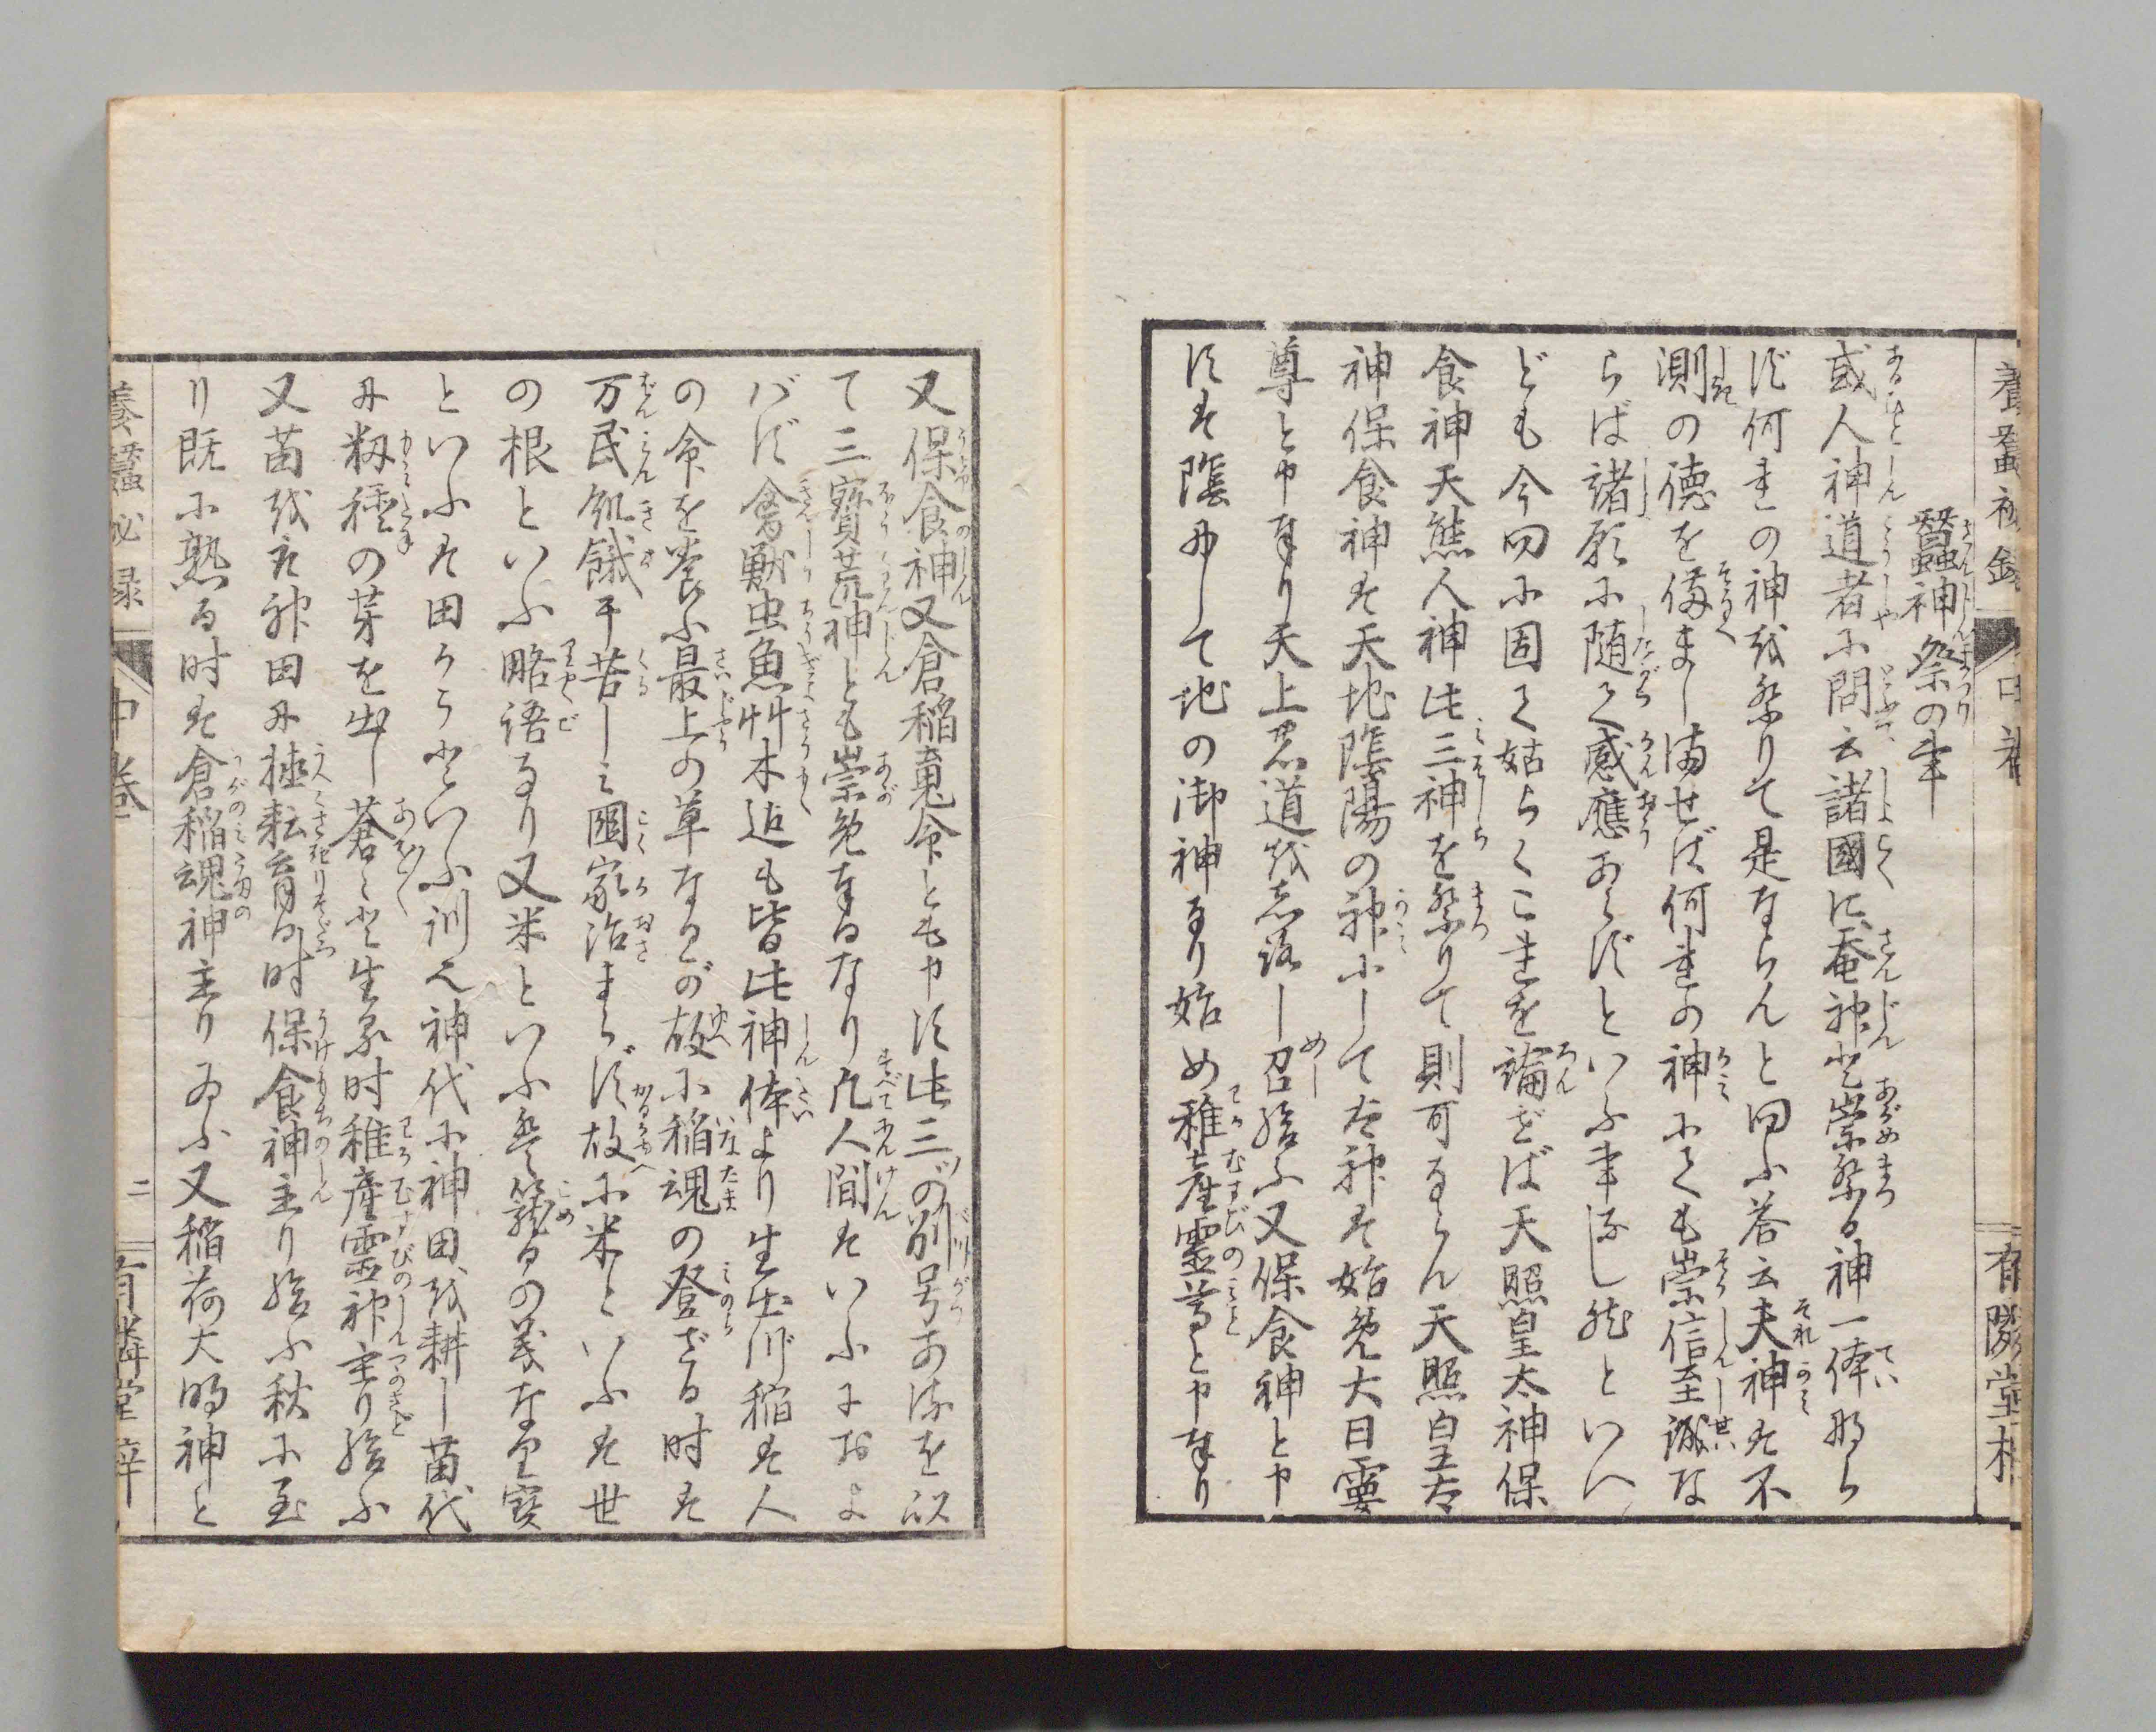 養蠶秘録
中卷
有隣堂梓
蠶神祭の事
或人神道者に問云諸國に蚕神と崇祭る神一体なら
ず何れの神を祭りて是ならんと問ふ答云夫神は不
測の徳を備まし満せば何れの神にても崇信至誠な
らば諸願に随て感應あらずといふ事なし然といへ
ども今問に因て姑らくこれを論ぜば天照皇太神保
食神天熊人神此三神を祭りて則可ならん天照皇太
神保食神は天地陰陽の神にして太神は始め大日孁
尊と申奉り天上の道を志ろし召給ふ又保食神と申
すは陰にして地の御神なり始め稚産霊尊と申奉り
又保食神又倉稲魂命とも申す此三ツの別号あるを以
て三寳荒神とも崇め奉るなり凡人間はいふにおよ
ばず禽獣虫魚艸木迄も皆此神体より生出づ稲は人
の命を養ふ最上の草なるが故に稲魂の登ざる時は
万民飢餓干苦しみ國家治まらず故に米といふは世
の根といふ略語なり又米といふは籠るの義なり寳
といふは田からといふ訓也神代に神田を耕し苗代
に籾種の芽を出し蒼々と生る時稚産霊神主り給ふ
又苗を神田に挿耘育る時保食神主り給ふ秋に至
り既に熟る時は倉稲魂神主り給ふ又稲荷大明神と
養蠶秘録
中卷
二
有隣堂梓